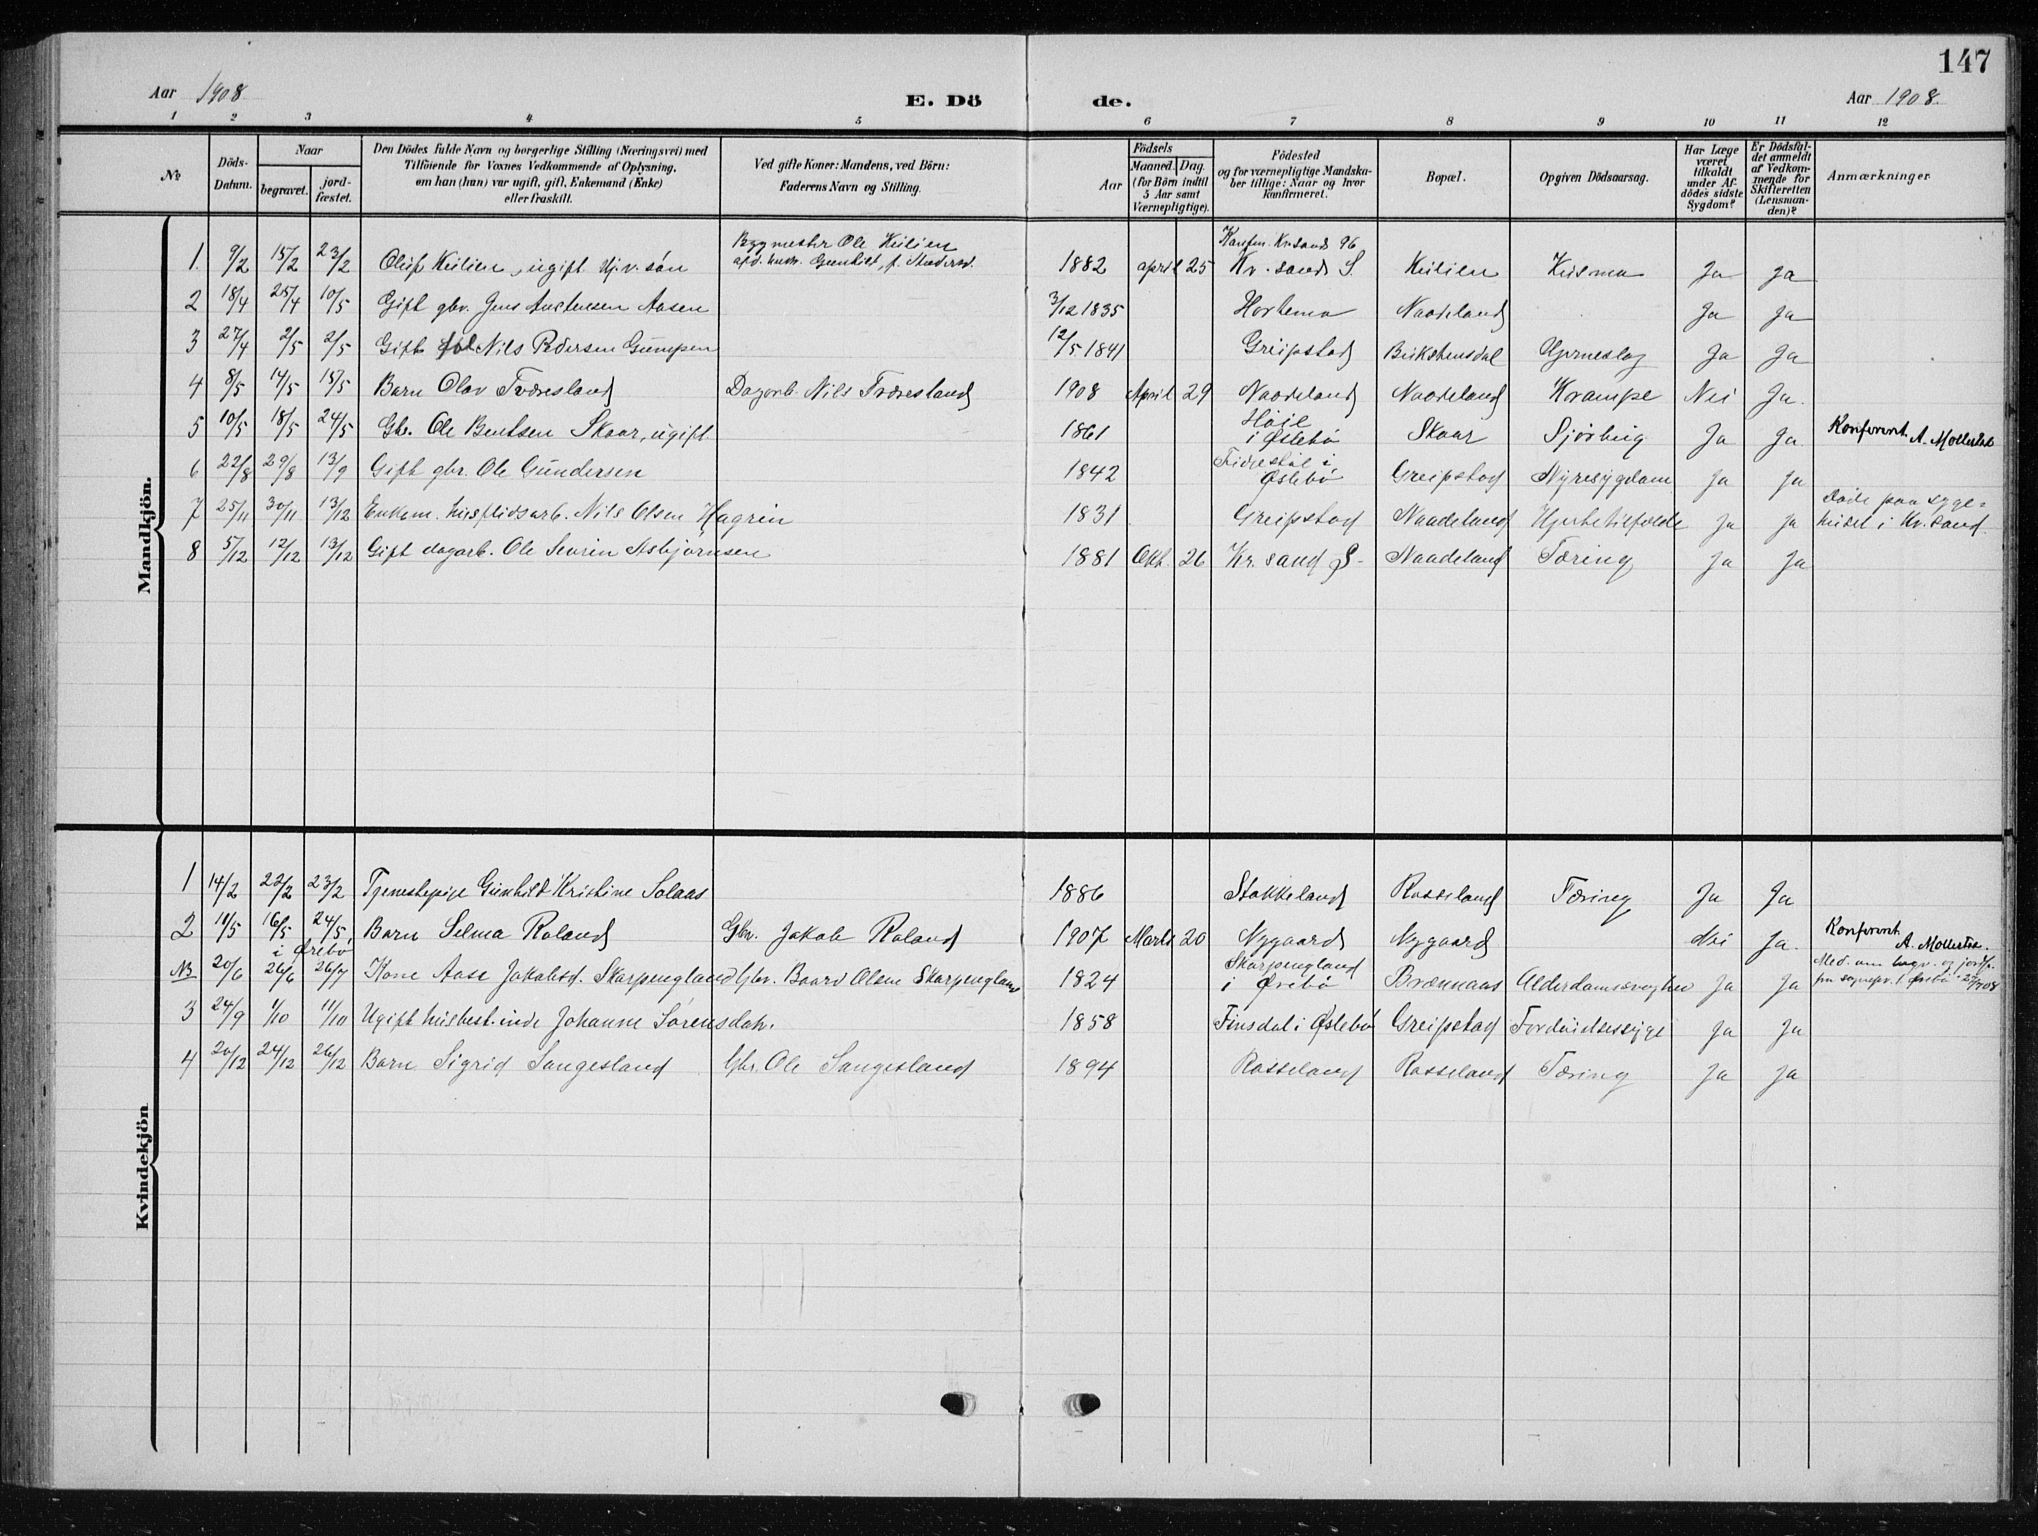 147
Aar 1908.
E. Dö
de.
Aar 1908.
1 2 3 4 5 6 7 8 9 10 11 12
No
Döds-Datum.
Naar
begravet.
jord-fæstet.
Den Dödes fulde Navn og borgerlige Stilling (Næringsvei) med
Tilföiende for Voxnes Vedkommende af Oplysning,
om han (hun) var ugift, gift, Enkemand (Enke)
eller fraskilt.
Ved gifte Koner: Mandens, ved Börn:
Faderens Navn og Stilling.
Födsels
Aar
Maaned. Dag.
(for Börn indtil
5 Aar samt
Værnepligtige).
Födested
og for værnepligtige Mandska-
ber tillige: Naar og hvor
konfirmeret.
Bopæl.
Opgiven Dödsaarsag.
Har Læge
været
tilkaldt
under Af-
dödes sidste
Sygdom?
Er Dödsfal-
det anmeldt
af Vedkom-
mende for
Skifteretten
(Lensman-
den)?
Anmærkninger
Mandkjön.
Bygmester Ole Keilien Konfm. Kr.sand 96
1. 9/2 15/2 23/2 Oluf Keilien, ugift Hj.v. søn 1882 april 25 Kr.sand S. Keilien Ja ja
2 18/4 25/4 10/5 Gift gbr. Jens Austensen Aasen 3/12 1835 Naadeland Ja Ja
3 27/4 2/5 2/5 Gift Nils Pedersen Gumpen 12/5 1841 Greipstad Hjerneslag Ja Ja
4 8/5 14/5 15/5 Barn Olav Tveresland Dagarb. Nils Tveresland 1908 April 29 Naadeland Naadeland Krampe Nei Ja.
5 10/5 18/5 24/5 Gbr. Ole Bentsen Skaar, ugift 1861 i Øslebø Skaar Ja Ja. Konferert A. Mollestad
6 22/8 29/8 13/9 Gift gbr. Ole Gundersen 1842 i Øslebø Greipstad Nyresygdom Ja Ja
7 25/11 30/11 13/12 Enkem. husflidsarb. Nils Olsen Hagrin 1831 Greipstad Naadeland Hjertetilfælde Ja Ja Døde paa syge-
huset i Kr.sand.
8 5/12 12/12 13/12 Gift dagarb. Ole Severin Asbjørnsen 1881 Okt. 26 Kr.sand S. Naadeland Tæring Ja Ja
Kvindekjön
1 14/2 22/2 23/2 Tjenestepige Gunhild Kristine Solaas 1886 Stokkeland Rosseland Tæring Ja Ja
2 11/5 16/5 24/5 Barn Selma Roland Gbr. Jakob Roland 1907 Marts 20 Nygaard Nygaard Nei Ja. Konferert A. Mollestad.
i Øvrebø
NB 20/6 26/6 26/7 Kone Aase Jakobsd. Skarpengland Gbr. Baard Olsen Skarpengland 1824 Skarpengland
i Øvrebø Brennaas Alderdomssvaghed Ja Ja Med. om begr. og jordf.
fra sognepr. i Øvrebø
3 24/9 1/10 11/10 Ugift husbest.inde Johanne Sørensdatr. 1858 Finsdal i Øslebø Greipstad Fordøielsessyge Ja Ja
4 20/12 24/12 26/12 Barn Sigrid Sangesland Gbr. Ole Sangesland 1894 Rosseland Rosseland Tæring Ja Ja